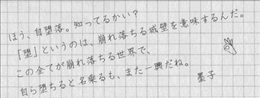 ほう、自堕落。知ってるかい?
「堕」というのは、崩れ落ちる城壁を意味するんだ。
この全てが崩れ落ちる世界で、
自ら堕ちると名乗るも、また一興だね。
墨子